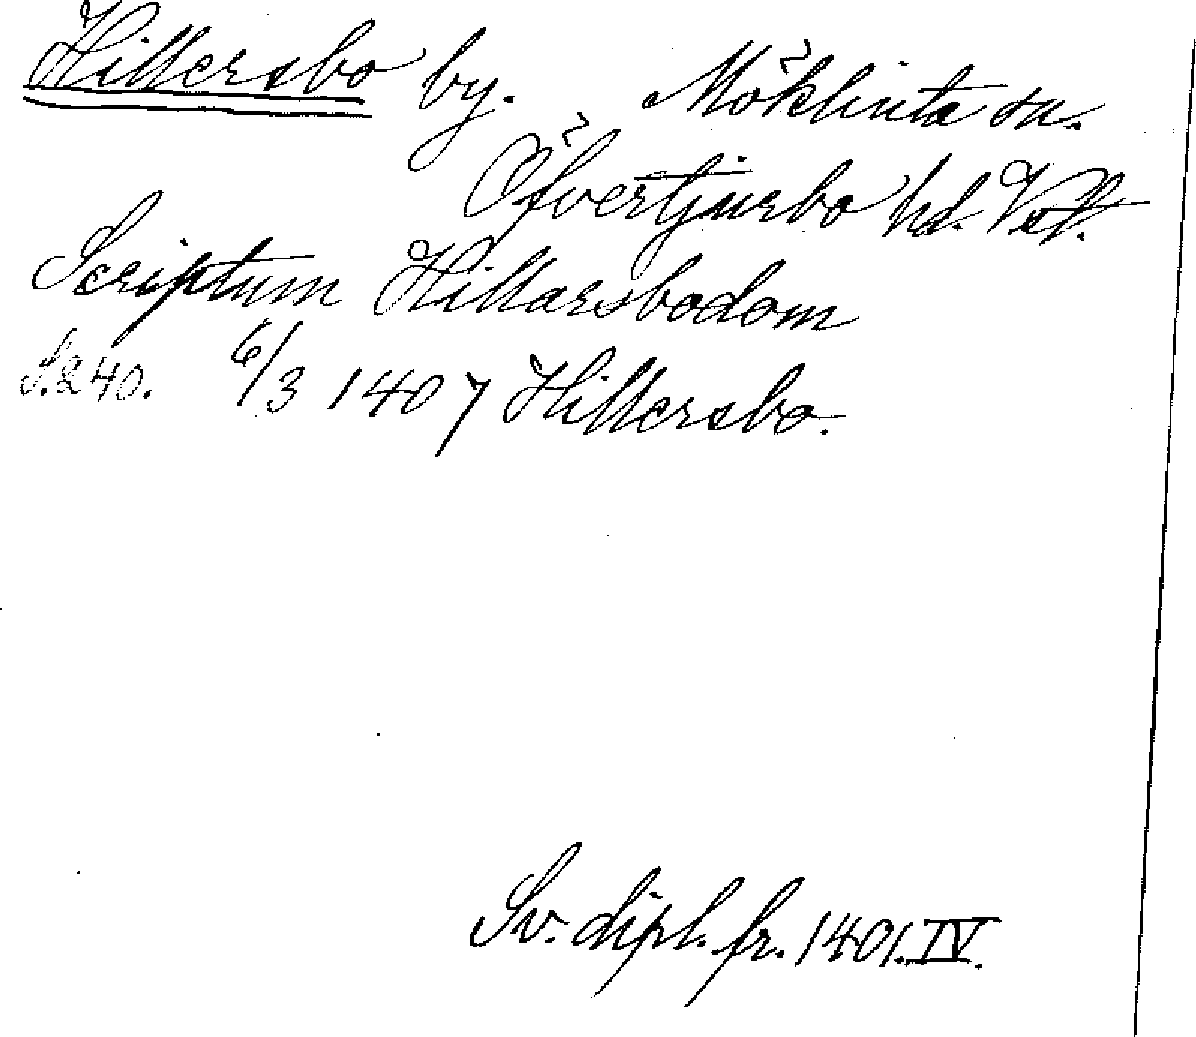 Hillersbo by. Möklinta sn.
Öfvertjurbo hd. Vstl.
Scriptum Hillarsbodom
S. 240. 6/3 1407 Hillersbo.
Sv. dipl. fr. 1401. IV.